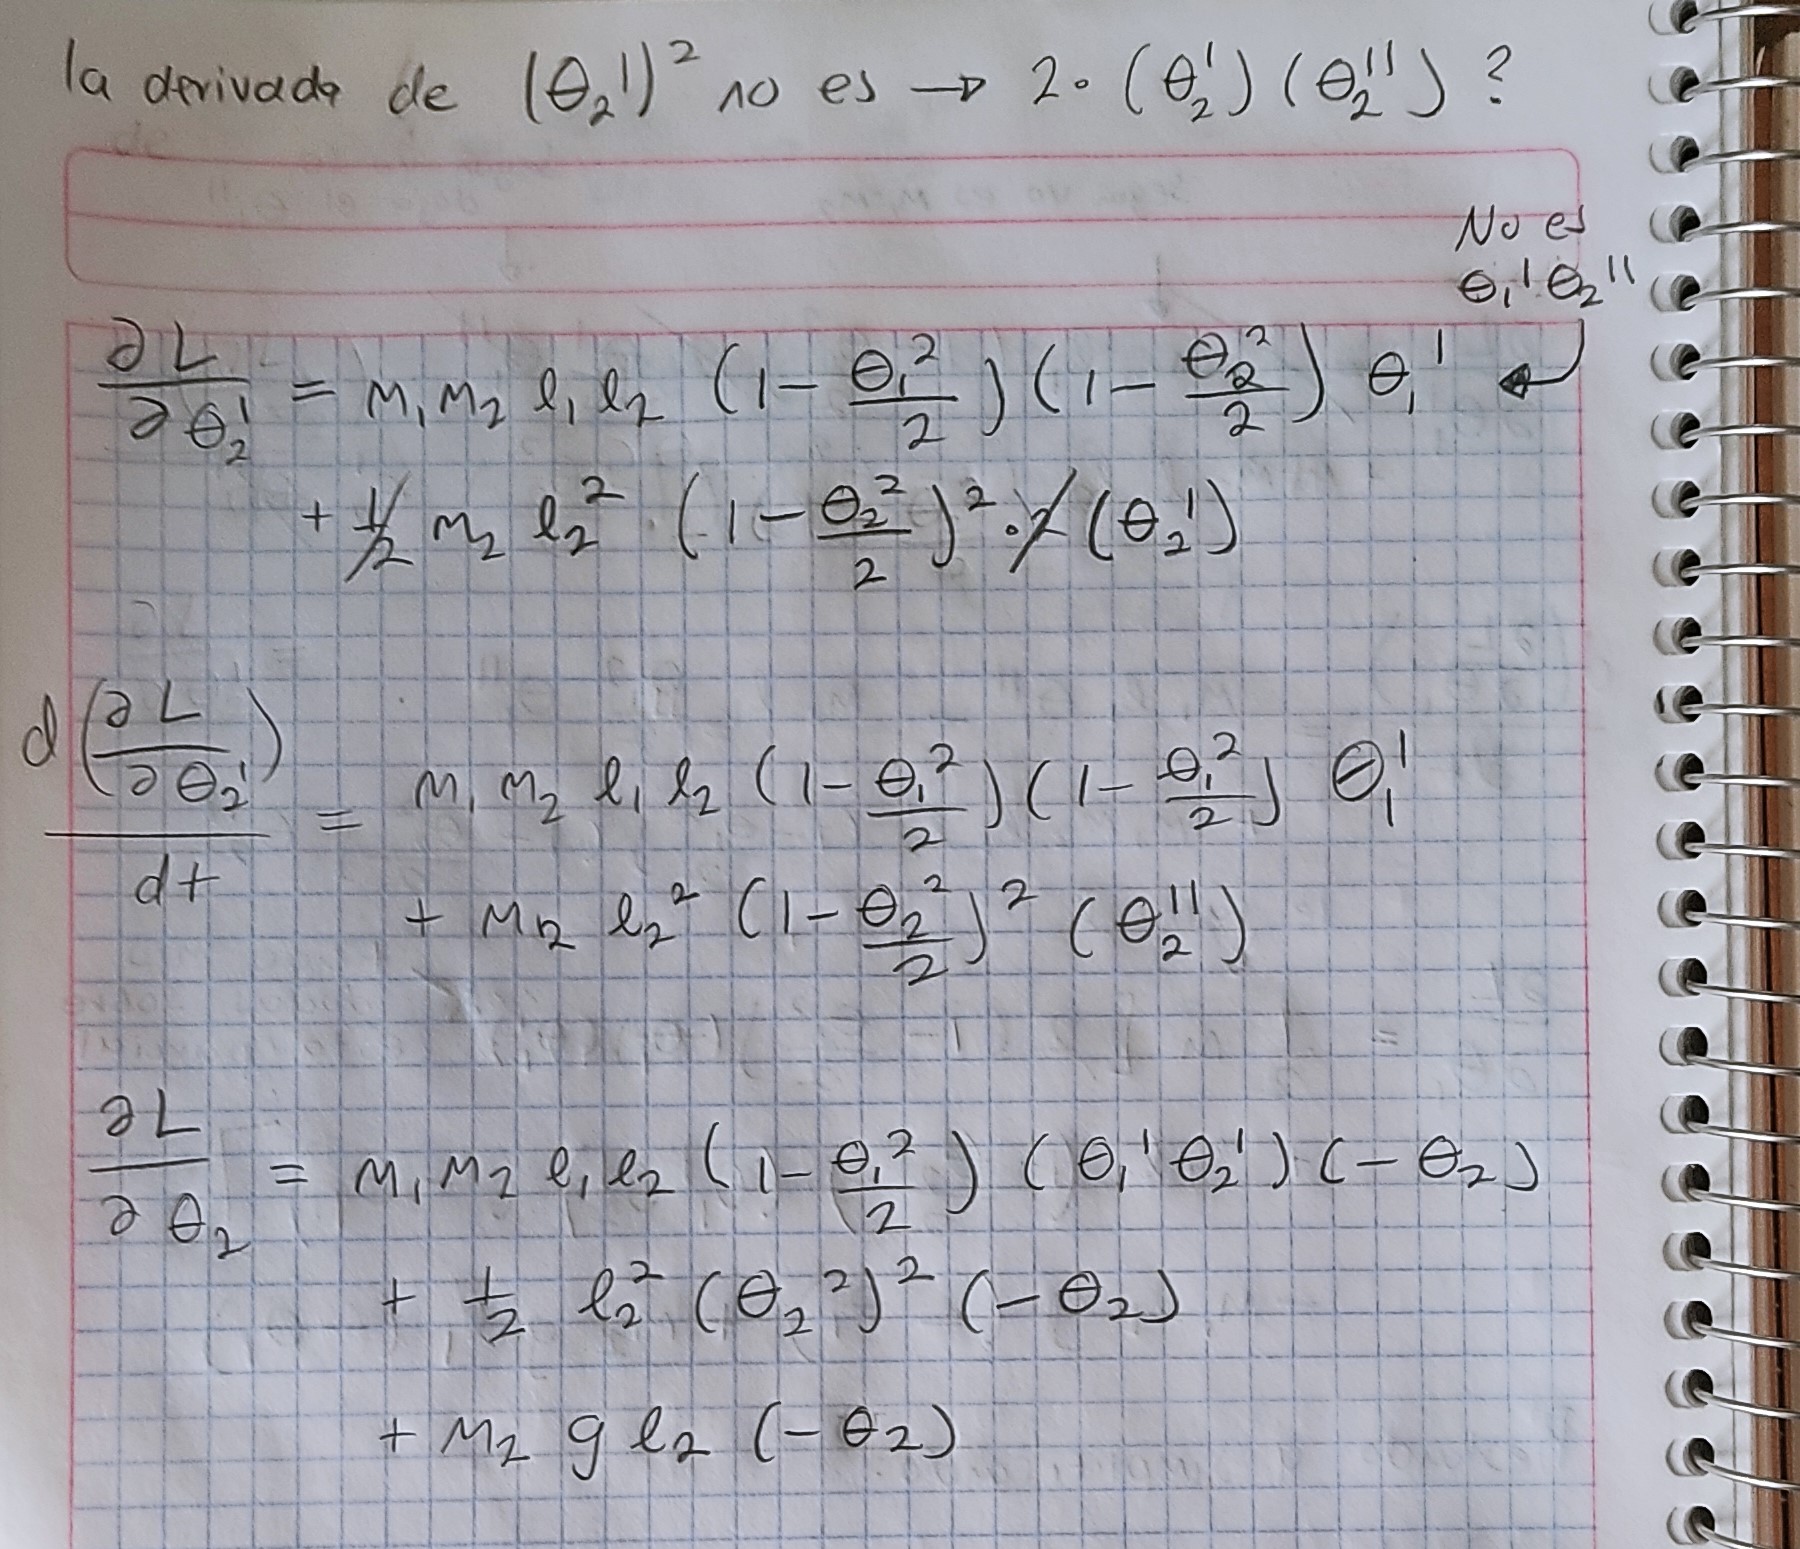 la derivada de (θ₂')² no es → 2·(θ₂')(θ₂'')?
No es
θ₁'θ₂''
∂L/∂θ₂' = m₁m₂ l₁l₂ (1-θ₁²/2)(1-θ₂²/2) θ₁' ←
+ 1/2 m₂ l₂² · (1-θ₂²/2)² · 2(θ₂')
d(∂L/∂θ₂')/dt = m₁m₂ l₁l₂ (1-θ₁²/2)(1-θ₁²/2) θ₁'
+ m₂ l₂² (1-θ₂²/2)² (θ₂'')
∂L/∂θ₂ = m₁m₂ l₁l₂ (1-θ₁²/2) (θ₁'θ₂')(-θ₂)
+ 1/2 l₂² (θ₂²)² (-θ₂)
+ m₂ g l₂ (-θ₂)